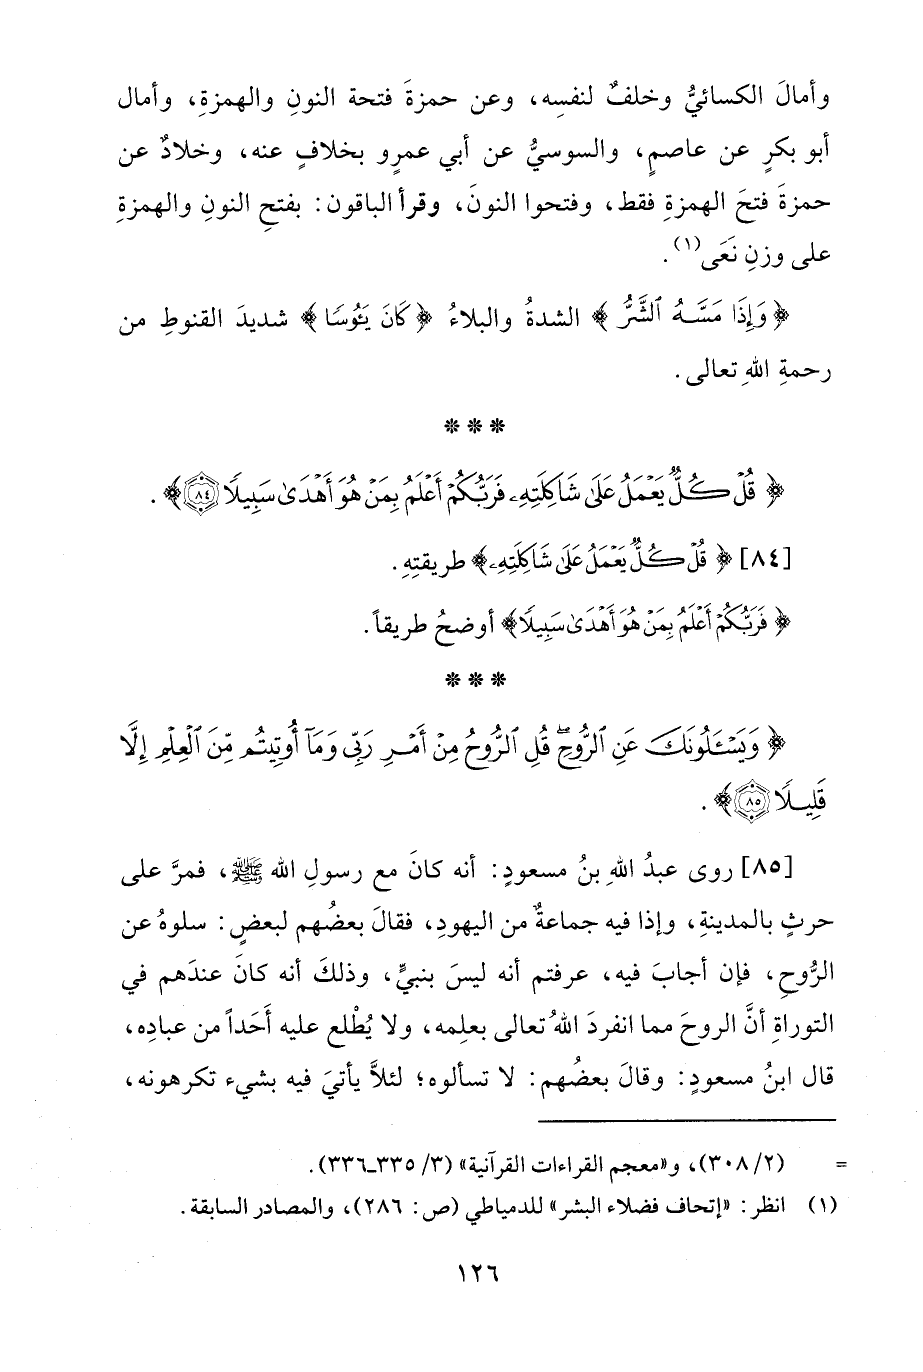 وأمالَ الكسائيُّ وخلفٌ لنفسِه، وعن حمزةَ فتحة النونِ والهمزةِ، وأمال
أبو بكرٍ عن عاصمٍ، والسوسيُّ عن أبي عمرٍو بخلافٍ عنه، وخلادٌ عن
حمزةَ فتحَ الهمزةِ فقط، وفتحوا النونَ، وقرأ الباقون: بفتحِ النونِ والهمزةِ
على وزنِ نَعَى(١).
﴿وَإِذَا مَسَّهُ ٱلشَّرُّ﴾ الشدةُ والبلاءُ ﴿كَانَ يَئُوسًا﴾ شديدَ القنوطِ من
رحمةِ اللهِ تعالى.
* * *
﴿قُلْ كُلٌّ يَعْمَلُ عَلَىٰ شَاكِلَتِهِۦ فَرَبُّكُمْ أَعْلَمُ بِمَنْ هُوَ أَهْدَىٰ سَبِيلًا ٨٤﴾.
[٨٤] ﴿قُلْ كُلٌّ يَعْمَلُ عَلَىٰ شَاكِلَتِهِۦ﴾ طريقتِهِ.
﴿فَرَبُّكُمْ أَعْلَمُ بِمَنْ هُوَ أَهْدَىٰ سَبِيلًا﴾ أوضحُ طريقاً.
* * *
﴿وَيَسْـَٔلُونَكَ عَنِ ٱلرُّوحِۖ قُلِ ٱلرُّوحُ مِنْ أَمْرِ رَبِّى وَمَآ أُوتِيتُم مِّنَ ٱلْعِلْمِ إِلَّا
قَلِيلًا ٨٥﴾.
[٨٥] روى عبدُ اللهِ بنُ مسعودٍ: أنه كانَ مع رسولِ الله ﷺ، فمرَّ على
حرثٍ بالمدينةِ، وإذا فيه جماعةٌ من اليهودِ، فقالَ بعضُهم لبعضٍ: سلوهُ عن
الرُّوحِ، فإن أجابَ فيه، عرفتم أنه ليسَ بنبيٍّ، وذلكَ أنه كانَ عندَهم في
التوراةِ أنَّ الروحَ مما انفردَ اللهُ تعالى بعلِمه، ولا يُطْلع عليه أَحَداً من عبادِه،
قال ابنُ مسعودٍ: وقالَ بعضُهم: لا تسألوه؛ لئلاَّ يأتيَ فيه بشيء تكرهونه،
= (٢/ ٣٠٨)، و«معجم القراءات القرآنية» (٣/ ٣٣٥ـ٣٣٦).
(١) انظر: «إتحاف فضلاء البشر» للدمياطي (ص: ٢٨٦)، والمصادر السابقة.
١٢٦